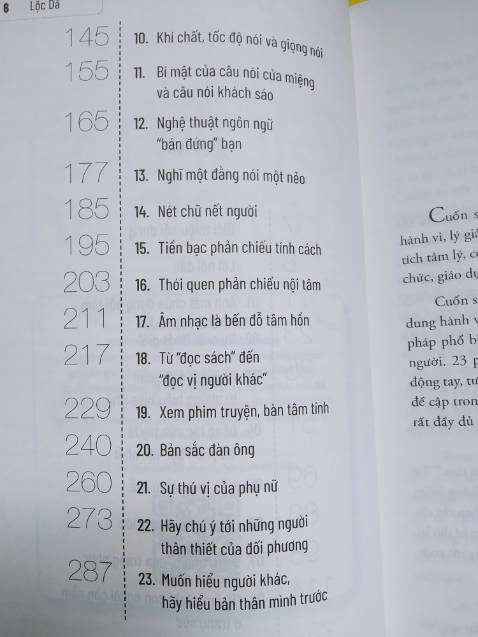 6 Lộc Dã
145 10. Khí chất, tốc độ nói và giọng nói
155 11. Bí mật của câu nói cửa miệng
và câu nói khách sáo
165 12. Nghệ thuật ngôn ngữ
"bán đứng" bạn
177 13. Nghĩ một đằng nói một nẻo
185 14. Nét chữ nết người
195 15. Tiền bạc phản chiếu tính cách
203 16. Thói quen phản chiếu nội tâm
211 17. Âm nhạc là bến đỗ tâm hồn
217 18. Từ "đọc sách" đến
"đọc vị người khác"
229 19. Xem phim truyện, bàn tâm tính
240 20. Bản sắc đàn ông
260 21. Sự thú vị của phụ nữ
273 22. Hãy chú ý tới những người
thân thiết của đối phương
287 23. Muốn hiểu người khác,
hãy hiểu bản thân mình trước
Cuốn
hành vi, lý
tích tâm lý,
chức, giáo
Cuốn
dung hành
pháp phổ
người. 23
động tay,
đề cập
rất đầy đủ